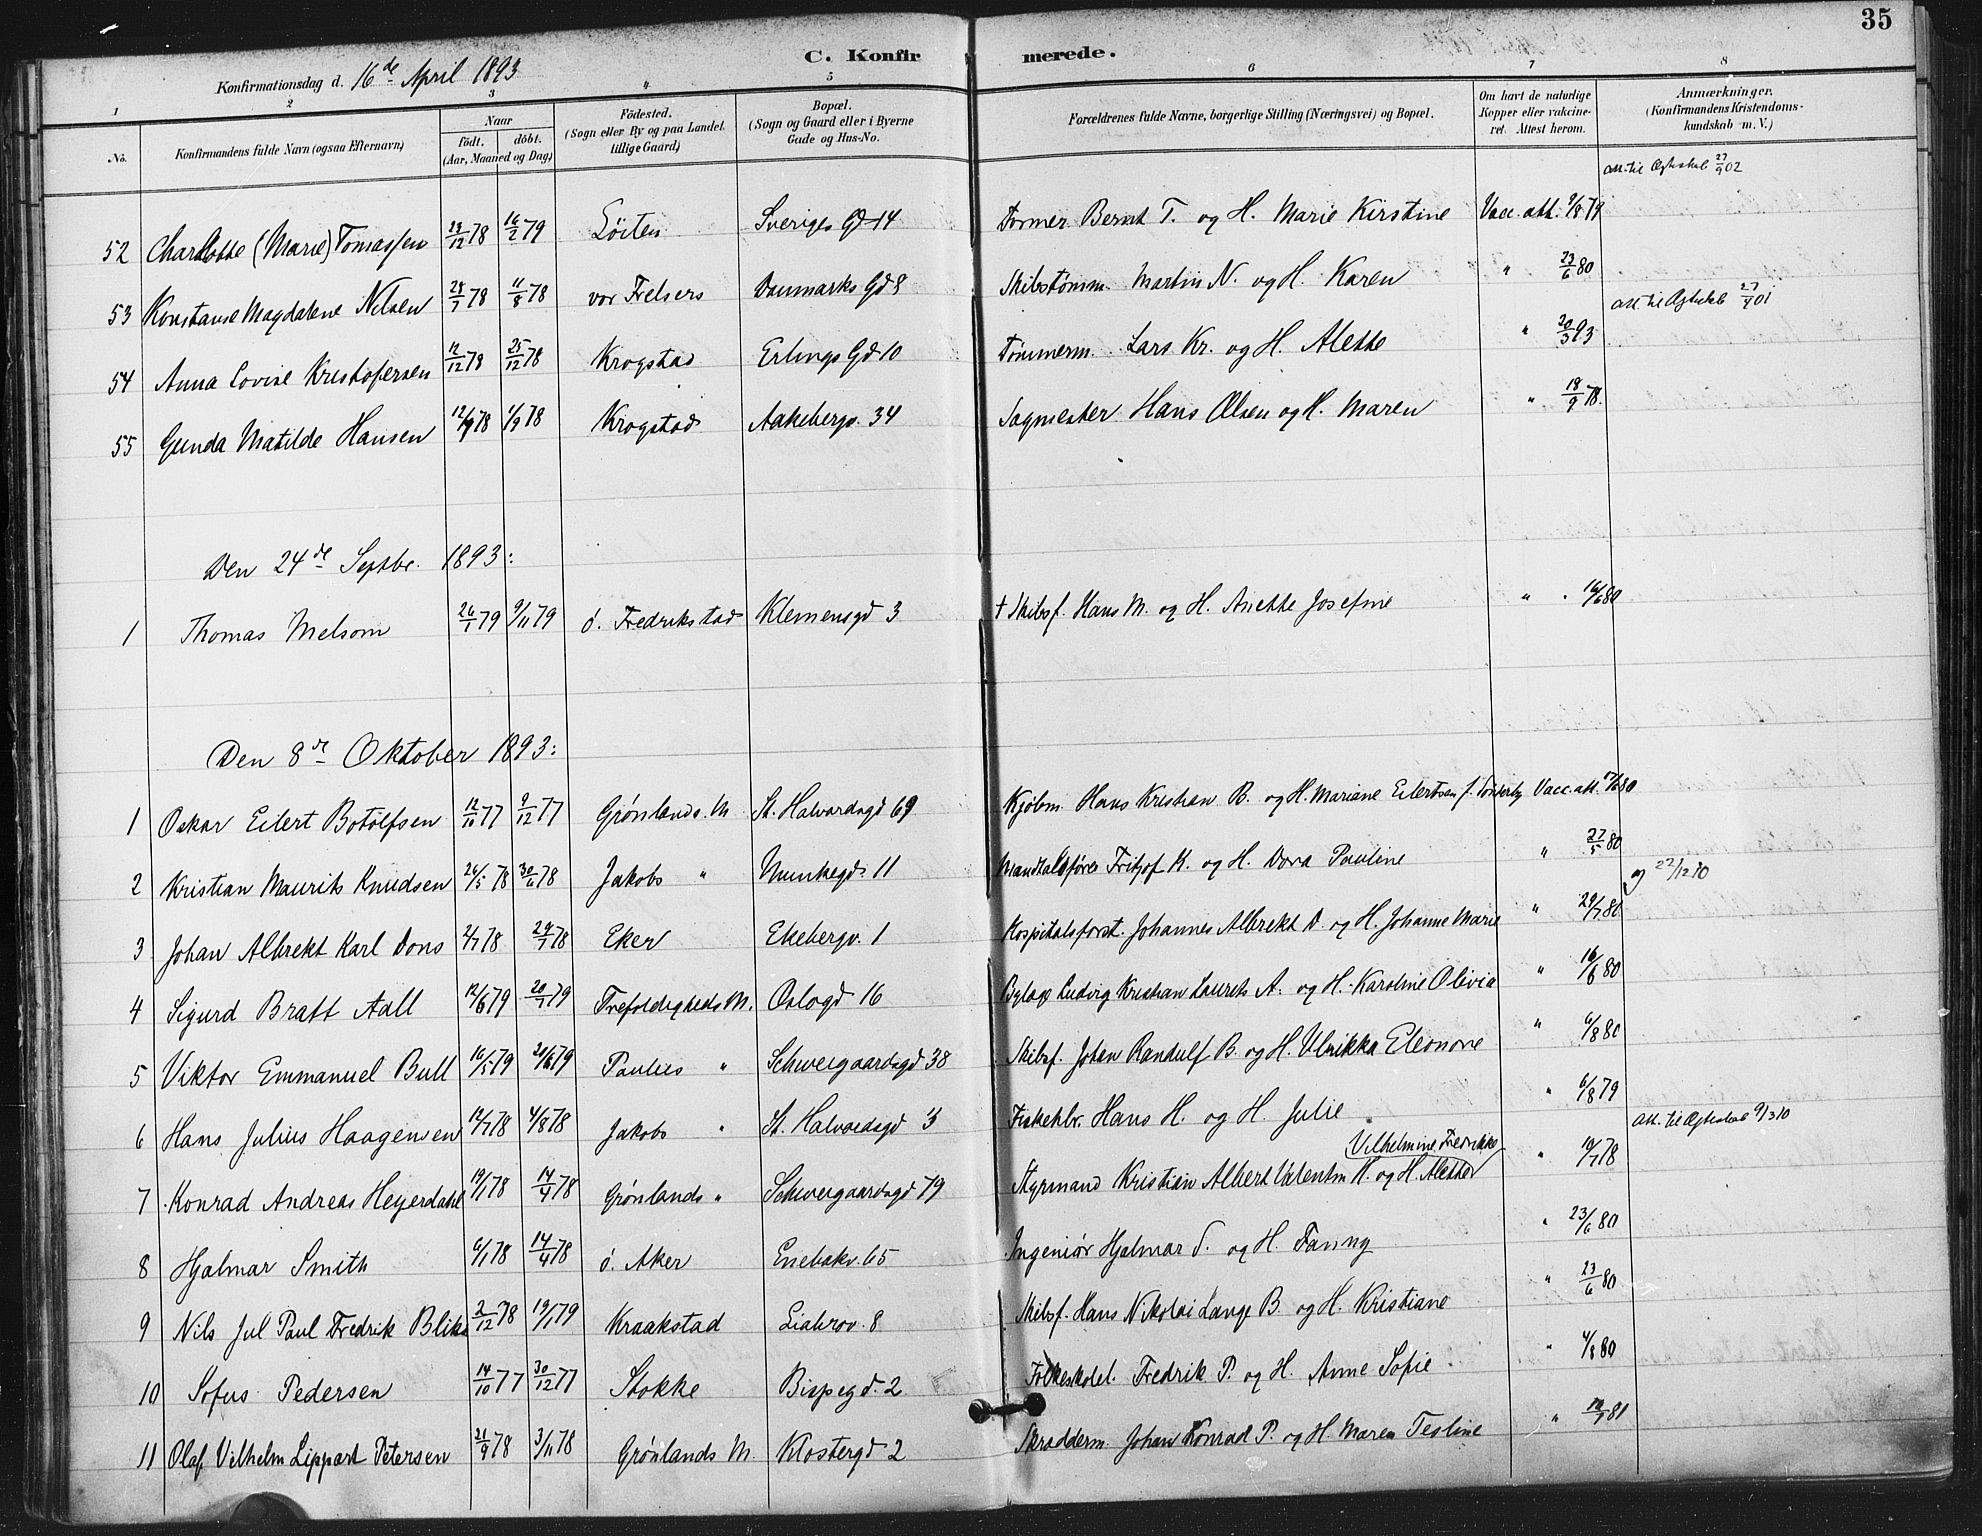 35
C. Konfirmerede.
Konfirmationsdag d. 16de April 1893
1 2 3 4 5 6 7 8
No. Konfirmandens fulde Navn (ogsaa Efternavn) Naar født. døbt. (Aar, Maaned og Dag) Fødested. (Sogn eller By og paa Landet tillige Gaard) Bopæl. (Sogn og Gaard eller i Byerne Gade og Hus-No. Forældrenes fulde Navne, borgerlige Stilling (Næringsvei) og Bopæl. Om havt de naturlige Kopper eller vakcineret. Attest herom. Anmærkninger. (Konfirmandens Kristendomskundskab m. V.)
att. til Ægteskab 27/9 02
52 Charlotte (Marie) Tomassen 23/12 78 16/2 79 Löiten Sveriges Gd 14 Former Bernt T. og H. Marie Kirstine Vacc. att. 9/8 79
53 Konstanse Magdalene Nilsen 28/7 78 11/8 78 vor Frelsers Danmarks Gd 8 Skibstømm. Martin N. og H. Karen " 23/6 80
att. til Ægteskab 27/9 01
54 Anna Lovise Kristofersen 12/12 78 25/12 78 Krogstad Erlings Gd 10 Tømmerm. Lars Kr. og H. Alette " 20/3 93
55 Gunda Matilde Hansen 12/9 78 1/9 78 Krogstad Aakebergv. 34 Sagmester Hans Olsen og H. Maren " 18/9 78.
Den 24de Septbr. 1893:
1 Thomas Melsom 26/7 79 9/11 79 ö. Fredrikstad Klemensgd 3 † Skibsf. Hans M. og H. Anette Josefine " 16/6 80
Den 8de Oktober 1893:
1 Oskar Eilert Botolfsen 12/10 77 9/12 77 Grønlands. M St. Halvardsgd 69 Kjøbm. Hans Kristian B. og H. Mariane Eilertsen f. Vacc. att. 17/6 80
2 Kristian Maurits Knudsen 26/5 78 30/6 78 Jakobs " Munkegd. 11 Mandtalsfører Fritjof K. og H. Dora Pauline " 27/5 80
22/12 10
3 Johan Albrekt Karl Dons 2/7 78 29/7 78 Eker Ekebergv. 1 Hospitalsforst. Johannes Albrekt D. og H. Johanne Marie " 29/7 80
4 Sigurd Bratt Aall 12/6 79 20/7 79 Trefoldigheds M. Oslogd 16 Ludvig Kristian Laurits A. og H. Karoline Olivia " 16/6 80
5 Viktor Emmanuel Bull 16/5 79 29/6 79 Paulus " Schweigaardsgd 38 Skibsf. Johan Randulf B. og H. Ulrikka Eleonore " 6/8 80
6 Hans Julius Haagensen 12/7 78 4/8 78 Jakobs " St. Halvardsgd 3 Fiskehlr. Hans H. og H. Julie " 6/8 79
att. til Ægteskab 9/3 10
Vilhelmine Fredrikke
7 Konrad Andreas Heyerdahl 19/1 78 14/4 78 Grønlands " Schweigaardsgd 79 Styrmand Kristian Albert Valentin H. og H. Alette " 10/7 78
8 Hjalmar Smith 6/1 78 14/4 78 ö. Aker Enebakv. 65 Ingeniør Hjalmar S. og H. Fanny " 23/6 80
9 Nils Jul Paul Fredrik Blikx 2/12 78 19/1 79 Kraakstad Liabrov. 8 Skibsf. Hans Nikolai Lange B. og H. Kristiane " 23/6 80
10 Sofus Pedersen 14/10 77 30/12 77 Stokke Bispegd. 2 Folkeskolel. Fredrik P. og H. Anne Sofie " 4/8 80
11 Olaf Vilhelm Lippart Petersen 21/9 78 3/11 78 Grønlands M. Klostergd 2 Skrædderm. Johan Konrad P. og H. Maren Tesline " 81